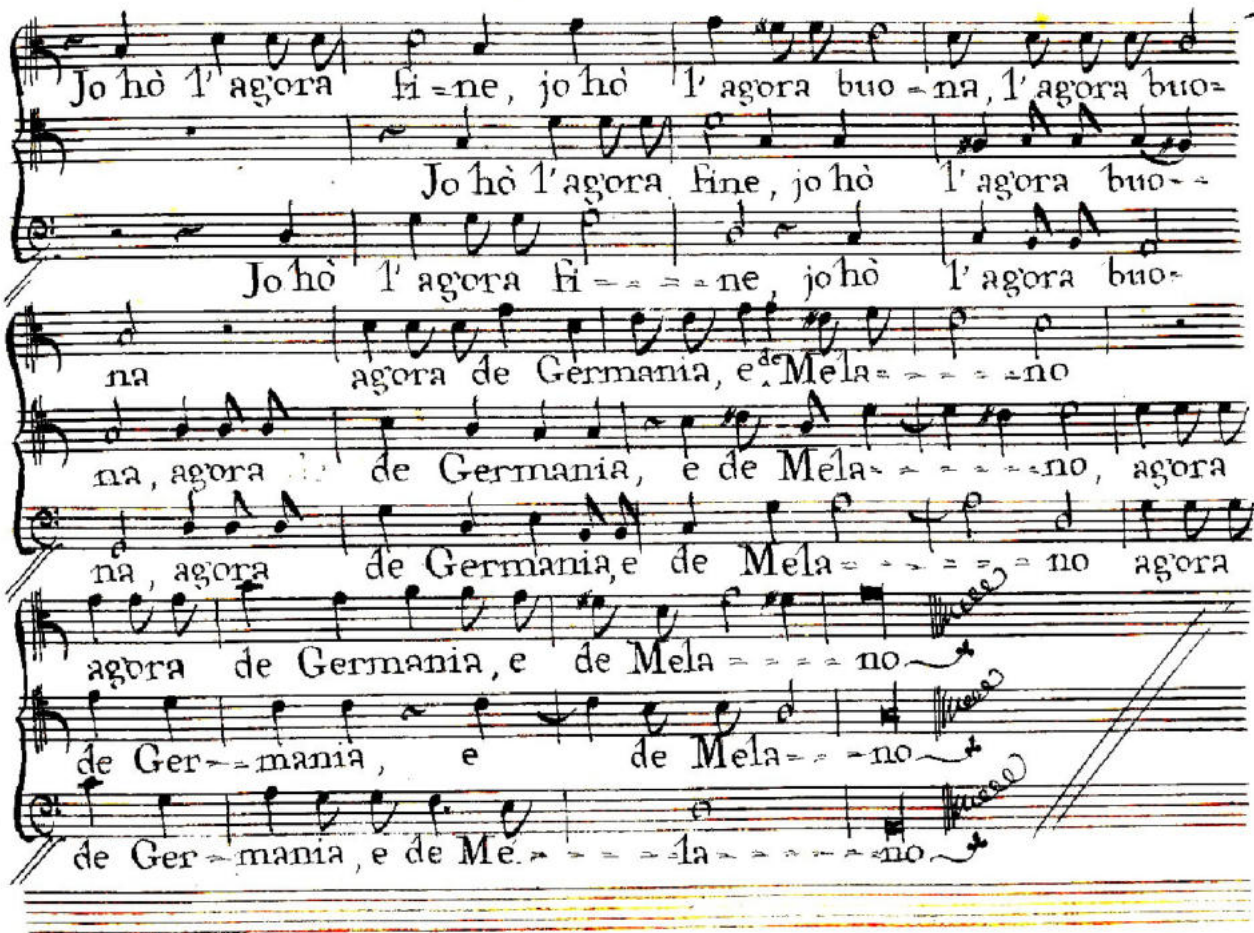 Jo hò l' agora fi=ne, jo hò l' agora buo=na, l' agora buo=
Jo hò l' agora fine, jo hò l' agora buo--
Jo hò l' agora fi====ne, jo hò l' agora buo-
na agora de Germania, e de Mela=====no
na, agora de Germania, e de Mela=====no, agora
na, agora de Germania, e de Mela=====no agora
agora de Germania, e de Mela====no
de Ger--mania, e de Mela=--no
de Ger=mania, e de Me.=====la=====no